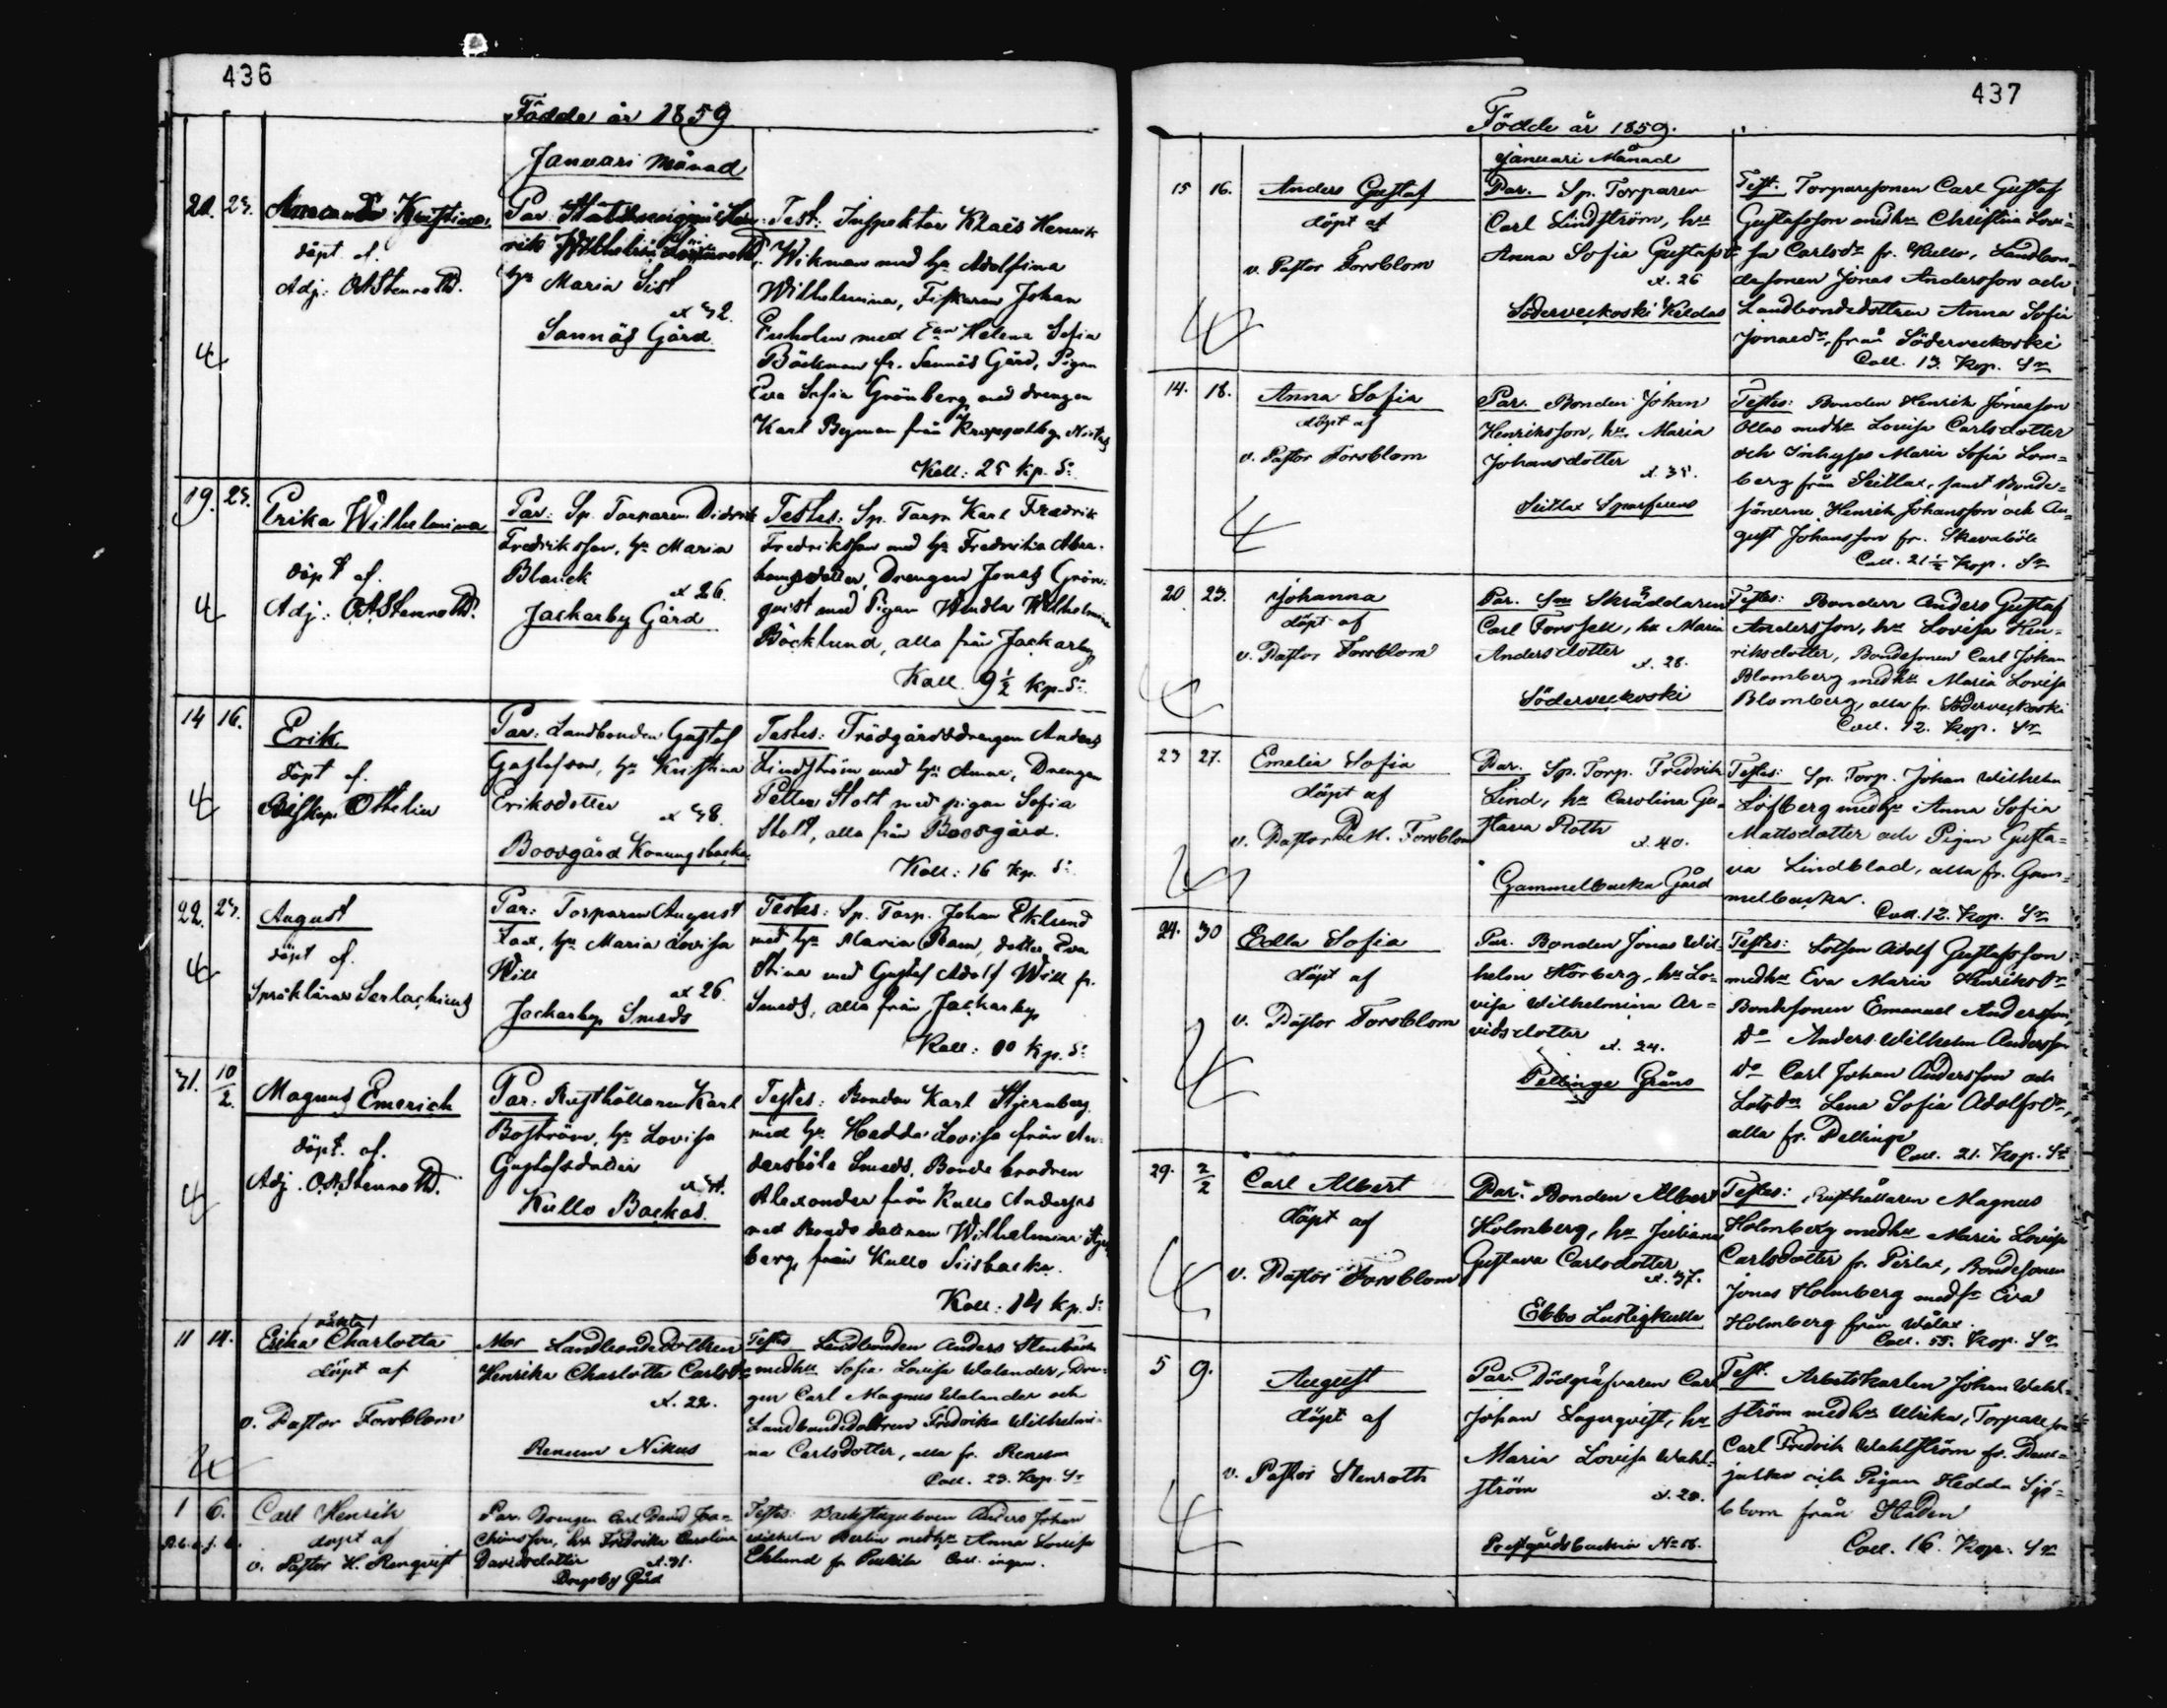 436
Födde år 1859
Januari Månad
20. 23. Amanda Kristina
döpt af
Adj: O.A. Stenroth.
Par: Hen-
rik
hu Maria Sist
æt 32.
Sannäs Gård
Test: Inspektor Klaës Henrik
Wikman med hu Adolfina
Wilhelmina, Fiskaren Johan
med Helena Sofia
Bäckman fr. Sannäs Gård, Pigan
Eva Sofia Grönberg med drengen
Karl Byman från
Koll: 25 kp. Sr
19. 23. Erika Wilhelmina
döpt af.
Adj: O.A. Stenroth.
Par: Sp. Torparen Didrik
Fredriksson, hu Maria
Blanck
æt 26.
Jackarby Gård
Testes: Sp. Torp. Karl Fredrik
Fredriksson med hu Fredrika Abra-
hamsdotter, Drengen Jonas Grön-
qvist med Pigan Wendla Wilhelmina
Böcklund, alla från Jackarby
Koll. 9 1/2 kp. Sr
14 16. Erik
döpt af.
Biskop Ottelin
Par: Landbonden Gustaf
Gustafsson, hu Kristina
Eriksdotter
æt 38.
Boesgård Konungsbacka
Testes: Trädgårdsdrengen Anders
Lindström med hu Anna, Drengen
Petter Stolt med pigan Sofia
Stolt, alla från Boesgård.
Koll: 16 kp. Sr
22. 23. August
döpt af.
Språklärar Serlachius
Par: Torparen August
Lax, hu Maria Lovisa
Will
æt 26.
Jackarby Smeds
Testes: Sp. Torp. Johan Eklund
med hu Maria Ram, dotter Eva
Stina med Gustaf Adolf Will fr.
Smeds, alla från Jackarby
Koll: 00 kp. Sr
31. 10/2. Magnus Emerich
döpt. af.
Adj. O.A. Stenroth.
Par: Rusthållaren Karl
Boström, hu Lovisa
Gustafsdotter
Kullo Backas.
Testes: Bonden Karl Stjernberg
med hu Hedda Lovisa från An-
dersböle Smeds, Bonde brodren
Alexander från Kullo Anderses
med Bonde dottren Wilhelmina Stjern-
berg, från Kullo Siisbacka.
Koll: 14 kp. Sr
11 14. /oäkta/
Erika Charlotta
döpt af
v. Pastor Forsblom
Mor Landbondedottren
Henrika Charlotta Carlsdr
æt. 22.
Renum Nikus
Testes Landbonden Anders Stenbäck
medhu Sofia Lovisa Walander, Dren-
gen Carl Magnus Walander och
Landbondedottren Fredrika Wilhelmi-
na Carlsdotter, alla fr. Renum
Coll. 23. Kop. Sr
1 6. Carl Henrik
döpt af
v. Pastor H. Renqvist
Par. Drengen Carl David Joa-
chimsson, hu Fredrika Carolina
Davidsdotter æt. 31.
Drägsby Gård
Testes: Backstugubon Anders Johan
Wilhelm Berlin medhu Anna Lovisa
Eklund fr Coll. ingen.
437
Födde år 1859.
Januari Månad
15 16. Anders Gustaf
döpt af
v. Pastor Forsblom
Par. Sp. Torparen
Carl Lindström, hu
Anna Sofia Gustafsdr
æt. 26
Söderveckoski Kieldas
Test. Torparesonen Carl Gustaf
Gustafsson medhu Christina Lovi-
sa Carlsdr fr. Kullo, Landbon-
desonen Jonas Andersson och
Landbondedottren Anna Sofia
Jonaedr, från Söderveckoski
Coll. 13. Kop. Sr
14. 18. Anna Sofia
döpt af
v. Pastor Forsblom
Par. Bonden Johan
Henriksson, hu Maria
Johansdotter
æt. 35.
Seitlax Sparfvens
Testes: Bonden Henrik Jonasson
Ollas medhu Lovisa Carlsdotter
och Inhyses Maria Sofia Lom-
berg från Seitlax, samt Bonde-
sönerne Henrik Johansson och Au-
gust Johansson fr. Skavaböle
Coll. 21 1/2 Kop. Sr
20 23. Johanna
döpt af
v. Pastor Forsblom
Par. Sne Skräddaren
Carl Forssell, hu Maria
Andersdotter
æt. 28.
Söderveckoski
Testes: Bonden Anders Gustaf
Andersson, hu Lovisa Hen-
riksdotter, Bondesonen Carl Johan
Blomberg medhu Maria Lovisa
Blomberg, alla fr. Söderveckoski
Coll. 12. Kop. Sr
23 27. Emelie Sofia
döpt af
v. Pastor M. Forsblom
Par. Sp. Torp. Fredrik
Lind, hu Carolina Gu-
stava Roth
æt. 40.
Gammelbacka Gård
Testes: Sp. Torp. Johan Wilhelm
Löfberg medhu Anna Sofia
Mattsdotter och Pigan Gusta-
va Lindblad, alla fr. Gam-
melbacka.
Coll. 12. Kop. Sr
24. 30 Edla Sofia
döpt af
v. Pastor Forsblom
Par. Bonden Jonas Wil-
helm Körberg, hu Lo-
visa Wilhelmina Ar-
vidsdotter
æt. 24.
Pellinge Gräns
Testes: Lotsen Adolf Gustafsson
medhu Eva Maria Henriksdr
Bondesonen Emanuel Andersson,
do Anders Wilhelm Andersson
do Carl Johan Andersson och
Lotsdn Lena Sofia Adolfsdr,
alla fr. Pellinge
Coll. 21. Kop. Sr
29. 2/2 Carl Albert
döpt af
v. Pastor Forsblom
Par. Bonden Albert
Holmberg, hu Juliana
Gustava Carlsdotter
æt. 37.
Ebbo Lustigkulla
Testes: Rusthållaren Magnus
Holmberg medhu Maria Lovisa
Carlsdotter fr. Pirlax, Bondesonen
Jonas Holmberg med Eva
Holmberg från Wålax.
Coll. 55. Kop. Sr
5 9. August
döpt af
v. Pastor Stenroth
Par. Dödgräfvaren Carl
Johan Lagerqvist, hu
Maria Lovisa Wahl-
ström
æt. 20.
Prestgårdsbackan No 18.
Test. Arbetskarlen Johan Wahl-
ström medhu Ulrika, Torpareson
Carl Fredrik Wahlström fr.
och Pigan Hedda Sjö-
blom från Staden
Coll. 16. Kop. Sr